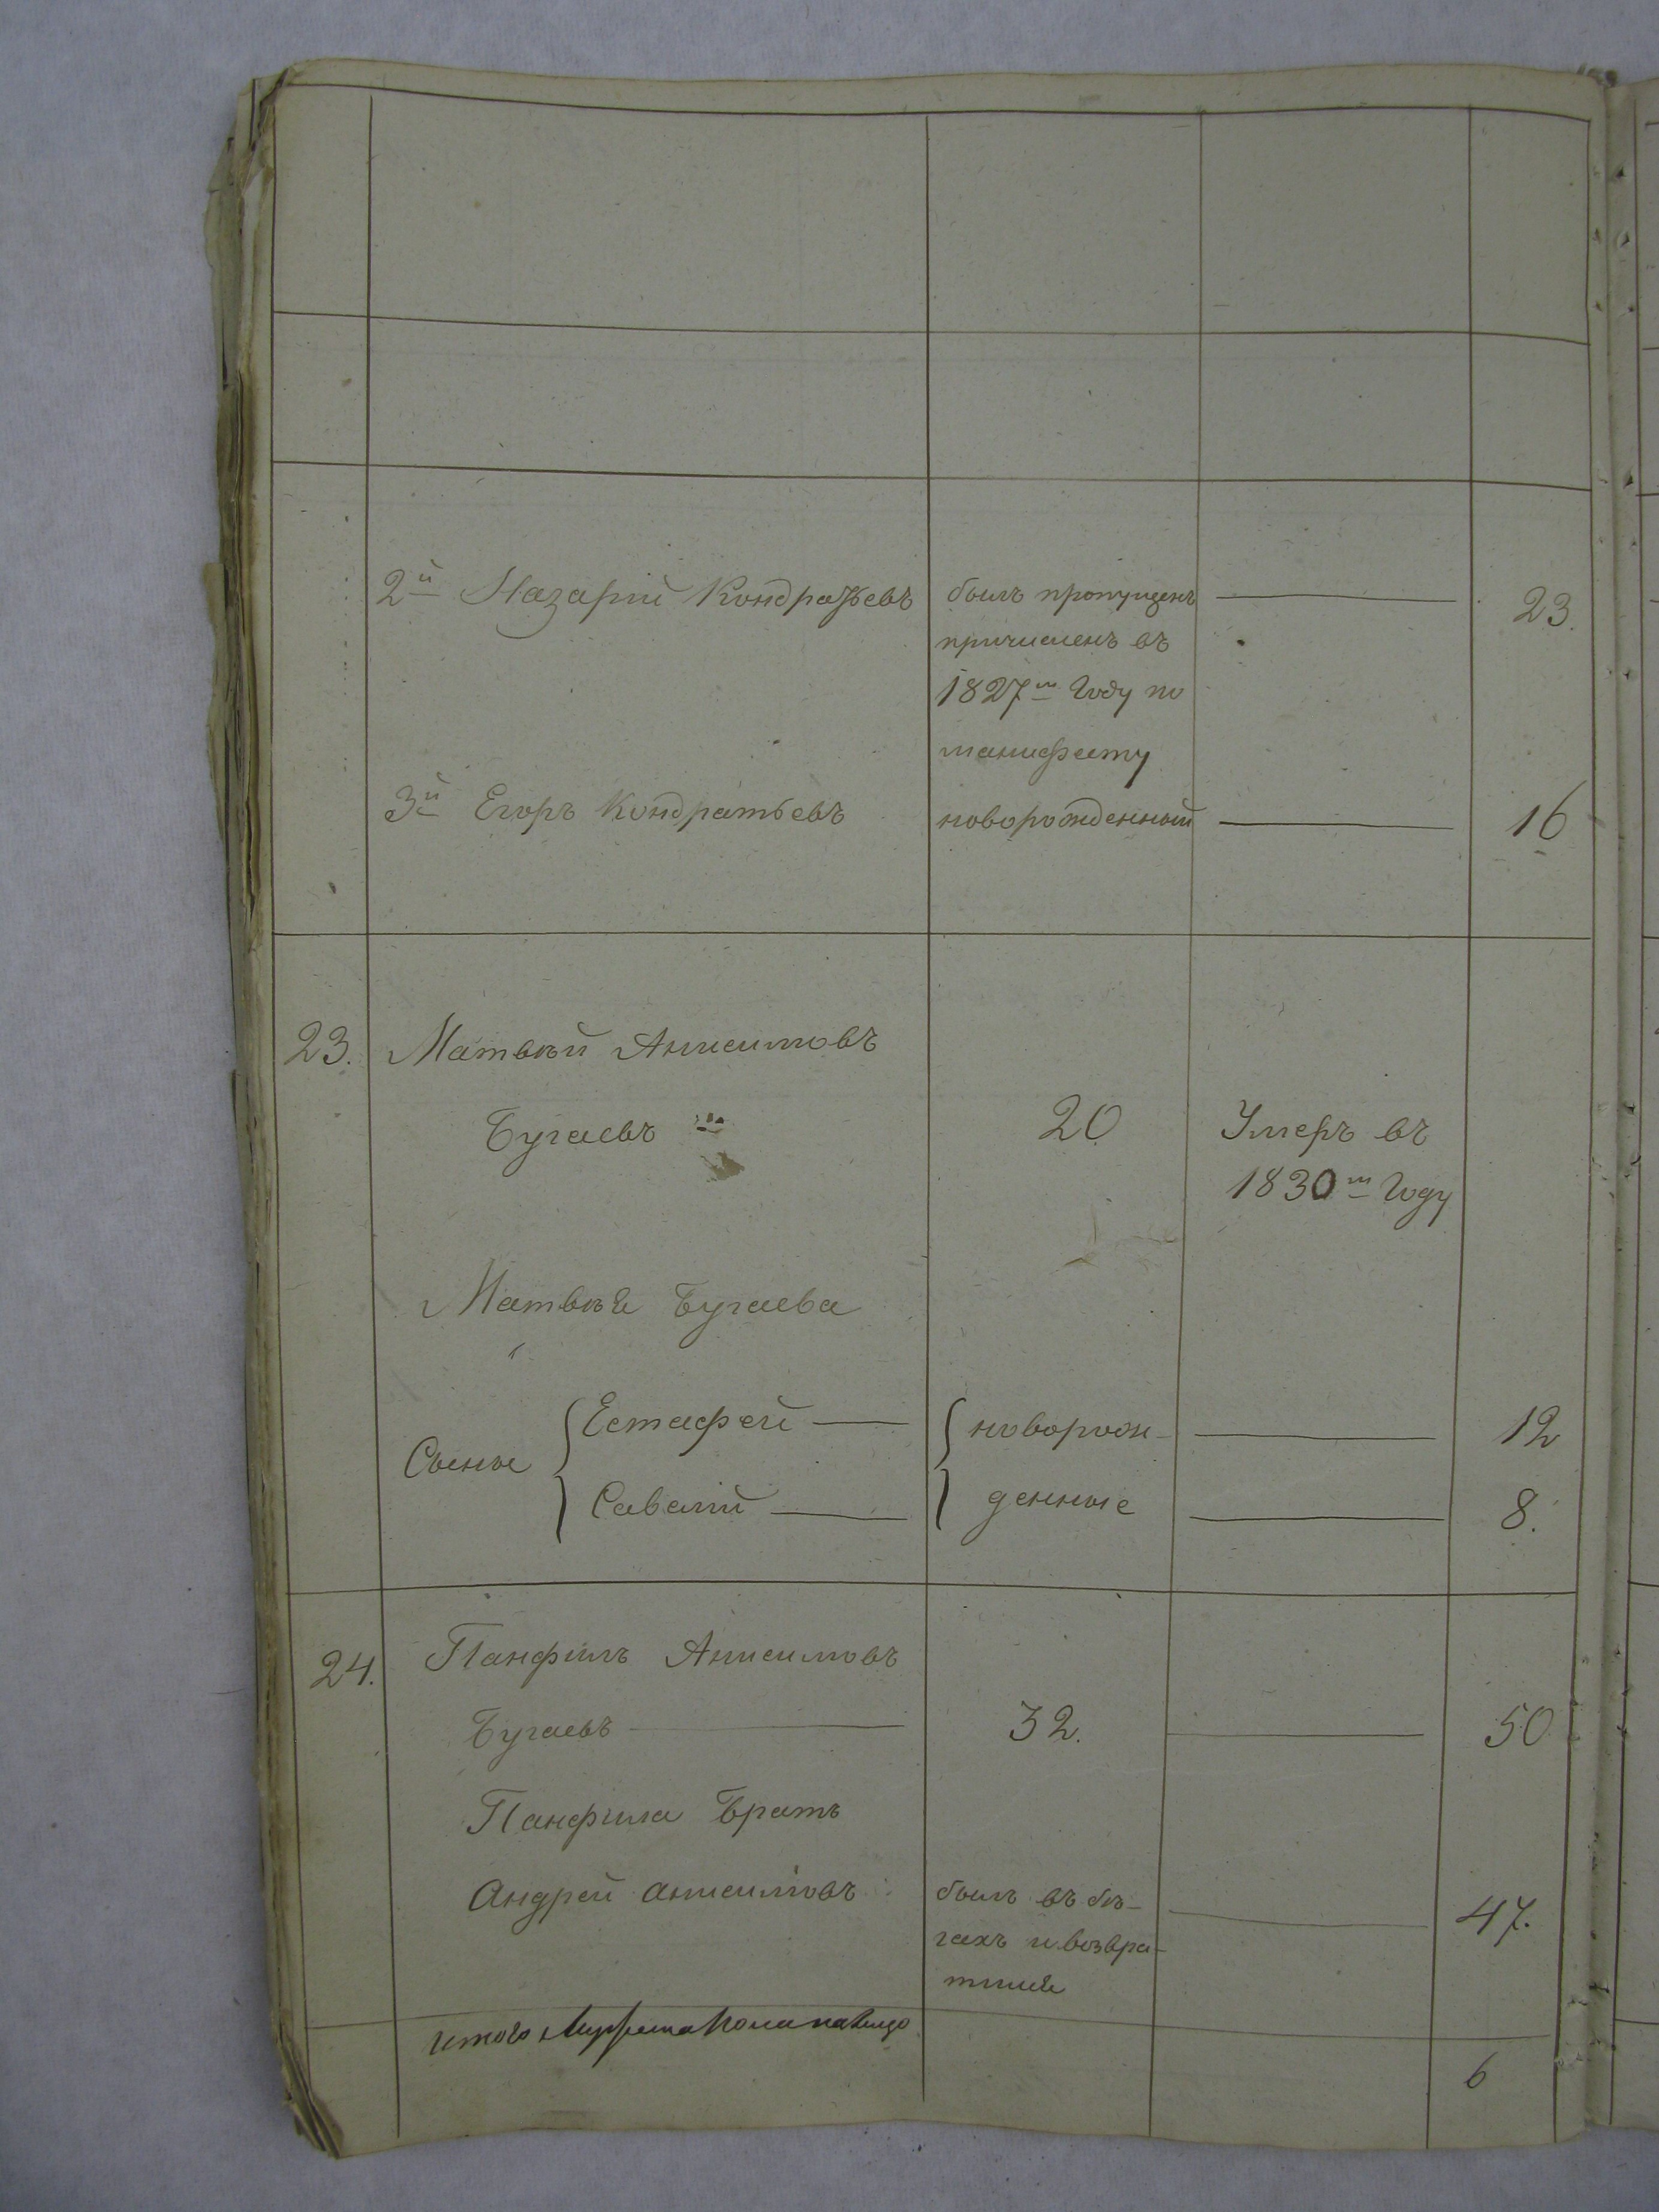 2й Назарий Кондратьевъ былъ пропущенъ 23.
причисленъ въ
1827м Году по
манифесту
3й Егоръ Кондратьевъ новорожденный 16
23. Матвѣй Анисимовъ
Бугаевъ 20 Умеръ въ
1830м Году
Матвѣя Бугаева
Сыны { Естафей { новорож- 12
Савелий денные 8.
24. Панфилъ Анисимовъ
Бугаевъ 32. 50
Панфила Братъ
Андрей Анисимовъ былъ въ бѣ- 47.
гахъ и возвра-
тился
итого мужеска пола на лицо
6